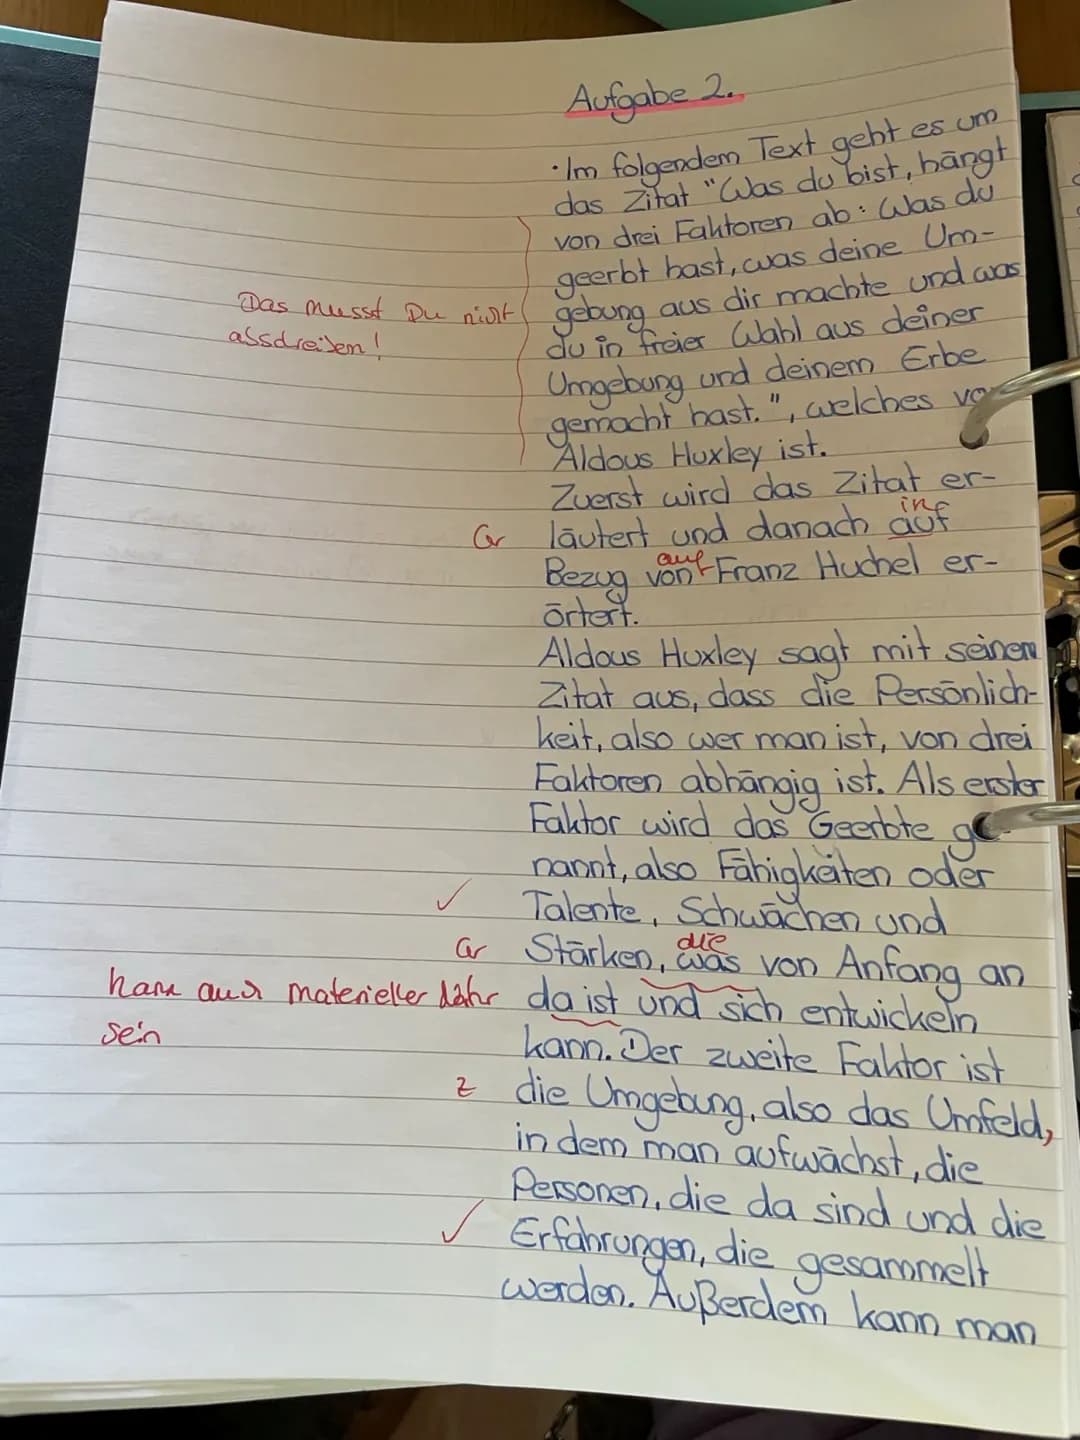 Aufgabe 2.
· Im folgendem Text geht es um
das Zitat "Was du bist, hängt
von drei Faktoren ab: Was du
geerbt hast, was deine Um-
gebung aus dir machte und was
Das musst Du nicht
abschreiben!
du in freier Wahl aus deiner
Umgebung und deinem Erbe
gemacht hast.", welches
Aldous Huxley ist.
Zuerst wird das Zitat er-
in
Gr läutert und danach auf
auf
Bezug von Franz Huchel er-
örtert.
Aldous Huxley sagt mit seinem
Zitat aus, dass die Persönlich-
keit, also wer man ist, von drei
Faktoren abhängig ist. Als erster
Faktor wird das Geerbte ge-
nannt, also Fähigkeiten oder
✓ Talente, Schwächen und
die
Gr Stärken, was von Anfang an
kann auch materieller
sein
da ist und sich entwickeln
kann. Der zweite Faktor ist
Z die Umgebung, also das Umfeld,
in dem man aufwächst, die
Personen, die da sind und die
✓ Erfahrungen, die gesammelt
werden. Außerdem kann man